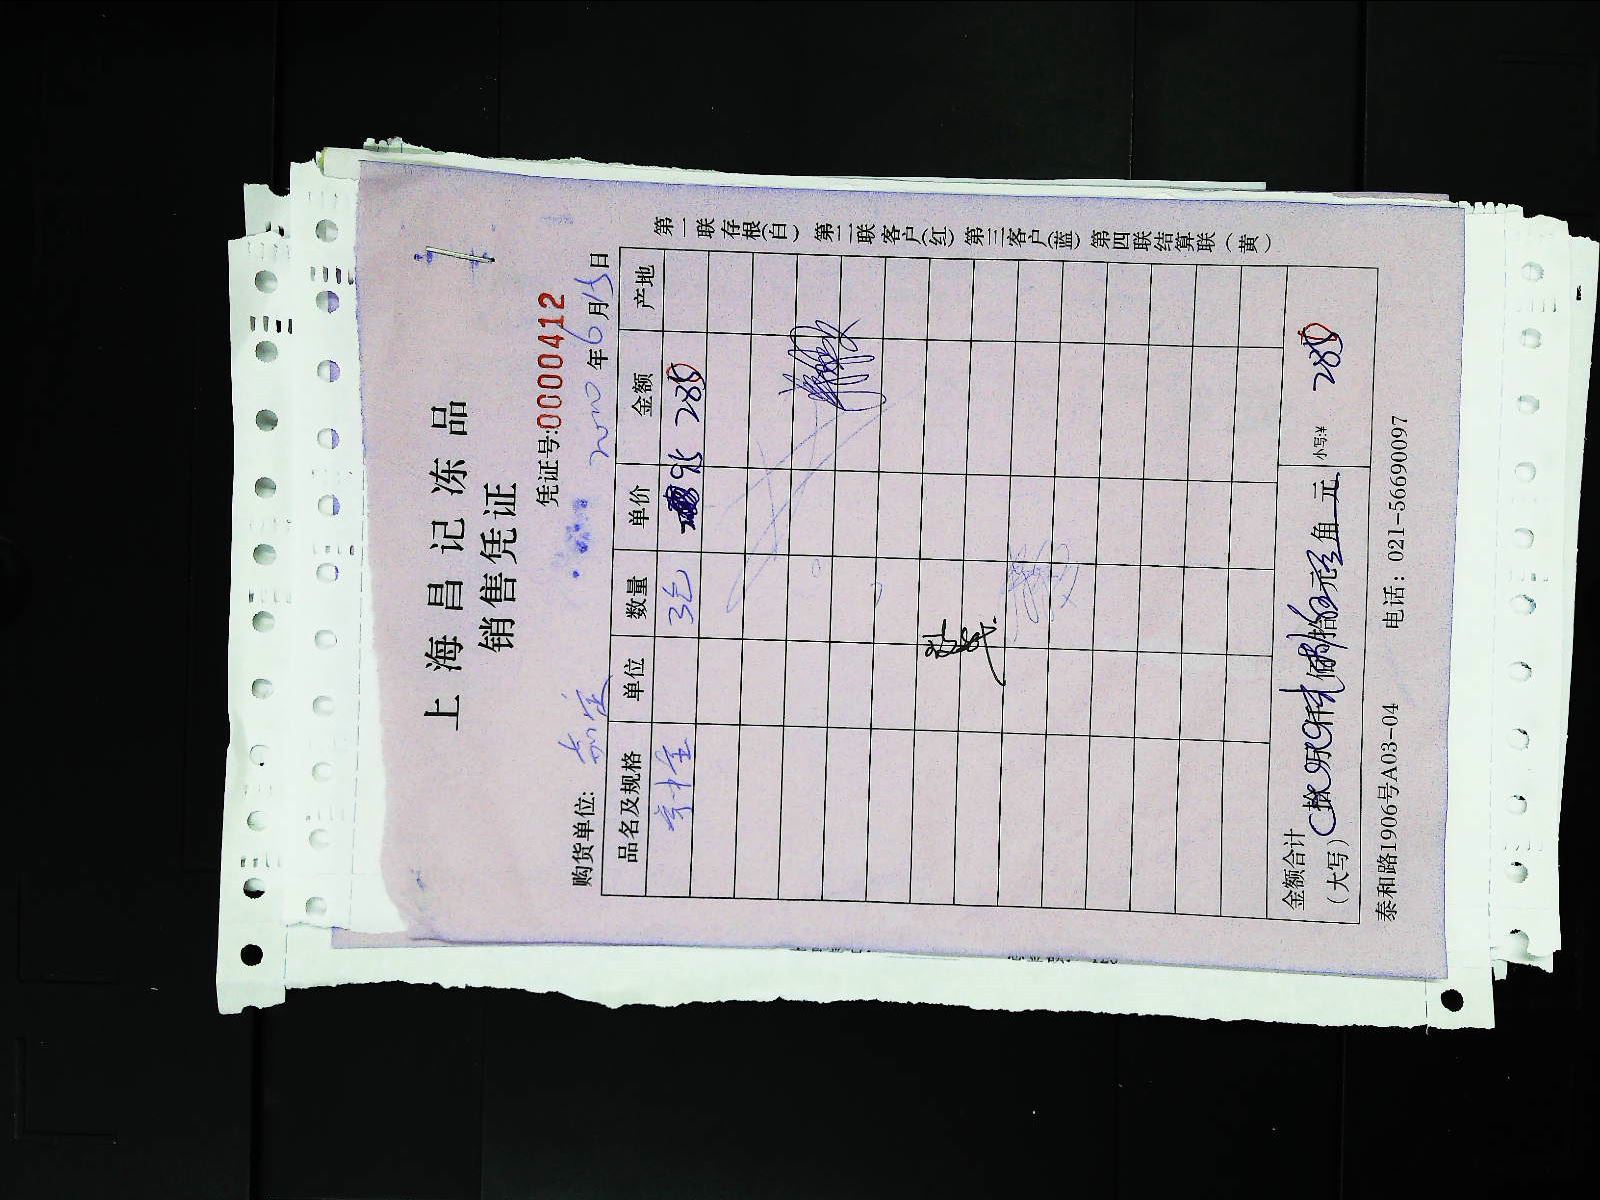 上海昌记冻品
销售凭证
凭证号:0000412
购货单位: 年6月15日
品名及规格 单位 数量 单价 金额 产地
3包 95 285
金额合计
(大写) 拾 万 仟 佰 拾 元 角 元 小写:¥ 285
泰和路1906号A03-04 电话: 021-56690097
第一联存根(白) 第二联客户(红) 第三客户(蓝) 第四联结算联(黄)